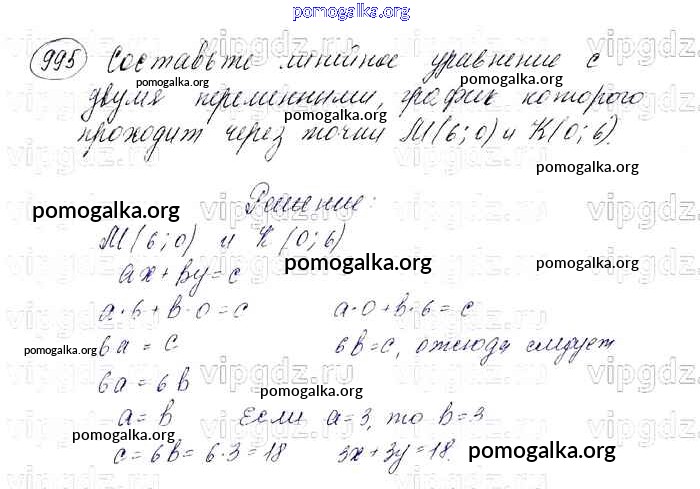 pomogalka.org
995 Составьте линейное уравнение с
pomogalka.org
двумя переменными, график которого
pomogalka.org
проходит через точки М(6;0) и К(0;6).
pomogalka.org
Решение:
pomogalka.org
М(6;0) и К(0;6)
pomogalka.org pomogalka.org pomogalka.org
ax+by=c
a·6+b·0=c a·0+b·6=c
pomogalka.org
6a=c 6b=c, отсюда следует
6a=6b
pomogalka.org
a=b Если a=3, то b=3
pomogalka.org
c=6b=6·3=18 3x+3y=18.
pomogalka.org
vipgdz.ru